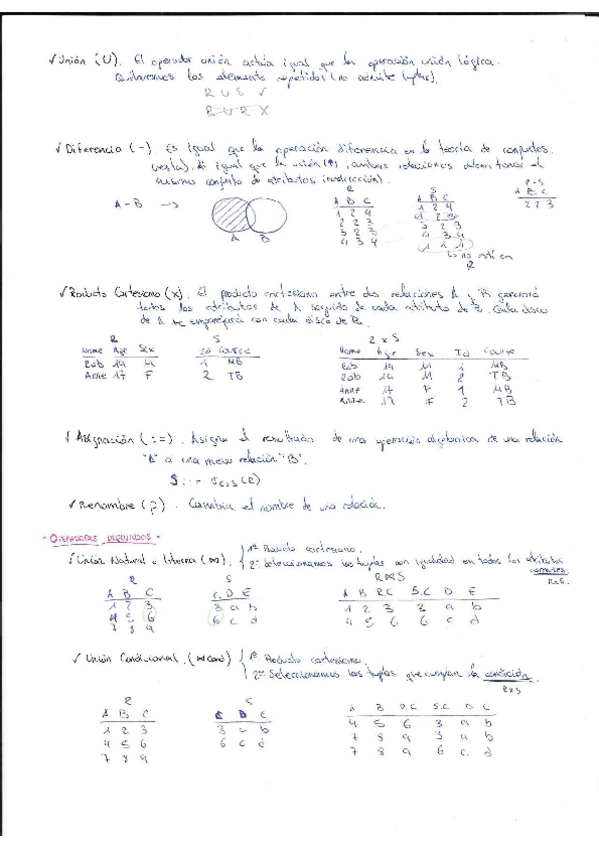 √ Unión (U). El operador unión actúa igual que la operación unión lógica.
los elementos repetidos (no admite
R U S ✓
R U R X
√ Diferencia (-). Es igual que la operación diferencia en la teoría de conjuntos.
igual que la unión ambas relaciones el
mismo conjunto de atributos
A - B →
A B
R
A B C
1 2 4
2 2 3
3 2 3
4 3 4
S
A B C
1 2 4
4 3 4
1 1 1
no está en
R
R - S
A B C
2 2 3
√ Producto Cartesiano (x). El producto cartesiano entre dos relaciones A y B generará
todos los atributos de A seguido de cada atributo de B. Cada
de A se emparejará con cada de B.
R
Name Age Sex
Bob 14 M
Anne 17 F
S
Id Course
1 MB
2 TB
R x S
Name Age Sex Id Course
Bob 14 M 1 MB
Bob 14 M 2 TB
Anne 17 F 1 MB
Anne 17 F 2 TB
√ Asignación (:=). Asigna el resultado de una operación algebraica de una relación
"A" a una nueva relación "B".
S :=
√ Renombre (ρ). Cambia el nombre de una relación.
- OPERADORES DERIVADOS -
√ Unión Natural o Interna (⋈). { 1º Producto cartesiano.
2º Seleccionamos las tuplas con igualdad en todos los atributos
comunes
R x S.
R
A B C
1 2 3
4 5 6
7 8 9
S
C D E
3 a b
6 c d
R ⋈ S
A B R.C S.C D E
1 2 3 3 a b
4 5 6 6 c d
√ Unión Condicional. (⋈cond) { 1º Producto cartesiano
2º Seleccionamos las tuplas que cumplan la condición.
R x S
R
A B C
1 2 3
4 5 6
7 8 9
S
C D E
3 a b
6 c d
A B R.C S.C D E
4 5 6 3 a b
7 8 9 3 a b
7 8 9 6 c d